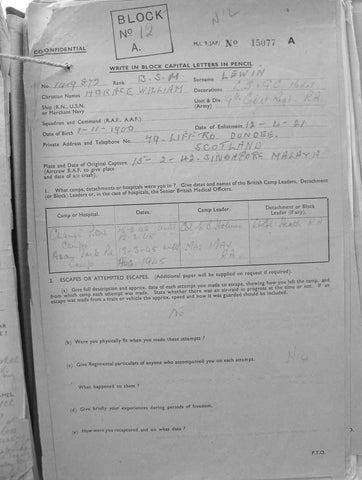 BLOCK
No 12
A.
NIL
CONFIDENTIAL
M.I. 9/JAP/ No 15077 A
WRITE IN BLOCK CAPITAL LETTERS IN PENCIL
No. Rank B.S.M Surname LEWIN
Christian Names HORACE WILLIAM Decorations
Ship (R.N., U.S.N. or Merchant Navy) Unit & Div. (Army) RA
Squadron and Command (R.A.F., A.A.F.)
Date of Birth Date of Enlistment 12-4-21
Private Address and Telephone No. 49 LIFF RD. DUNDEE.
SCOTLAND
Place and Date of Original Capture 15-2-42 SINGAPORE MALAYA
(Aircrew R.A.F. to give place and date of a/c crash).
1. What camps, detachments or hospitals were you in? Give dates and names of the British Camp Leaders, Detachment (or Block) Leaders or, in the case of hospitals, the Senior British Medical Officers.
Camp or Hospital. Dates. Camp Leader. Detachment or Block Leader (if any).
Changi Camp until Col Holmes RA
Camp until 1945 Maj RA
2. ESCAPES OR ATTEMPTED ESCAPES. (Additional paper will be supplied on request if required).
(a) Give full description and approx. date of each attempt you made to escape, showing how you left the camp, and from which camp each attempt was made. State whether there was an air-raid in progress at the time or not. If an escape was made from a train or vehicle the approx. speed and how it was guarded should be included.
No
(b) Were you physically fit when you made these attempts?
(c) Give Regimental particulars of anyone who accompanied you on each attempt. Nil
What happened to them?
(d) Give briefly your experiences during periods of freedom.
(e) How were you recaptured and on what date?
P.T.O.